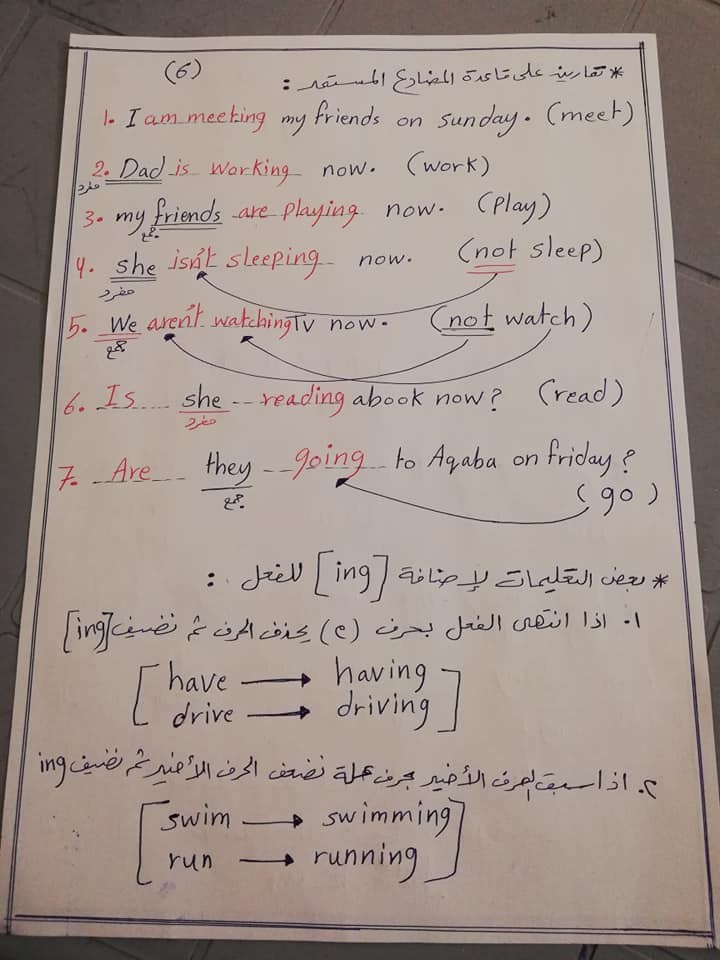 (6)
* تمارين على قاعدة المضارع المستمر :
1. I am meeting my friends on sunday. (meet)
2. Dad is working now. (work)
مفرد
3. my friends are playing now. (play)
جمع
4. she isn't sleeping now. (not sleep)
مفرد
5. We aren't watching TV now. (not watch)
جمع
6. Is she reading abook now? (read)
مفرد
7. Are they going to Aqaba on friday?
جمع
(go)
* بعض التعليمات لإضافة [ing] للفعل :
١. اذا انتهى الفعل بحرف (e) يحذف الحرف ثم نضيف [ing]
have → having
drive → driving
٢. اذا سبق الحرف الأخير بحرف علة نضعف الحرف الأخير ثم نضيف ing
swim → swimming
run → running